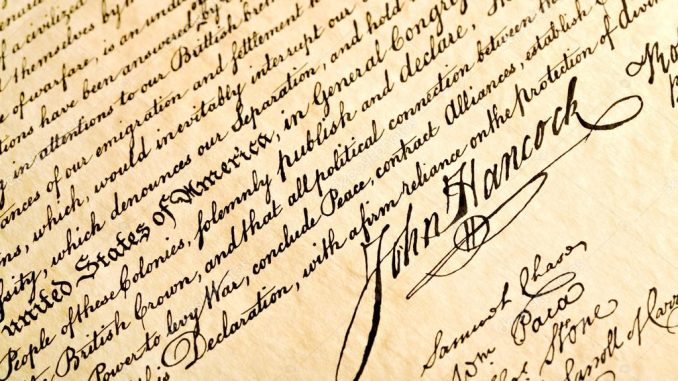 of a civilized
themselves by
of warfare, is an undis
tions have been answered by
in attentions to our Brittish breth
ances of our emigration and settlement h
ns, which, would inevitably interrupt our
sity, which denounces our Separation, and hold
united States of America, in General Congre
People of these Colonies, solemnly publish and declare, Tha
British Crown, and that all political connection between the
Power to levy War, conclude Peace, contract Alliances, establish C
his Declaration, with a firm reliance on the protection of divin
John Hancock
Samuel Chase
Wm Paca
Stone
Carroll of Carro
Ro